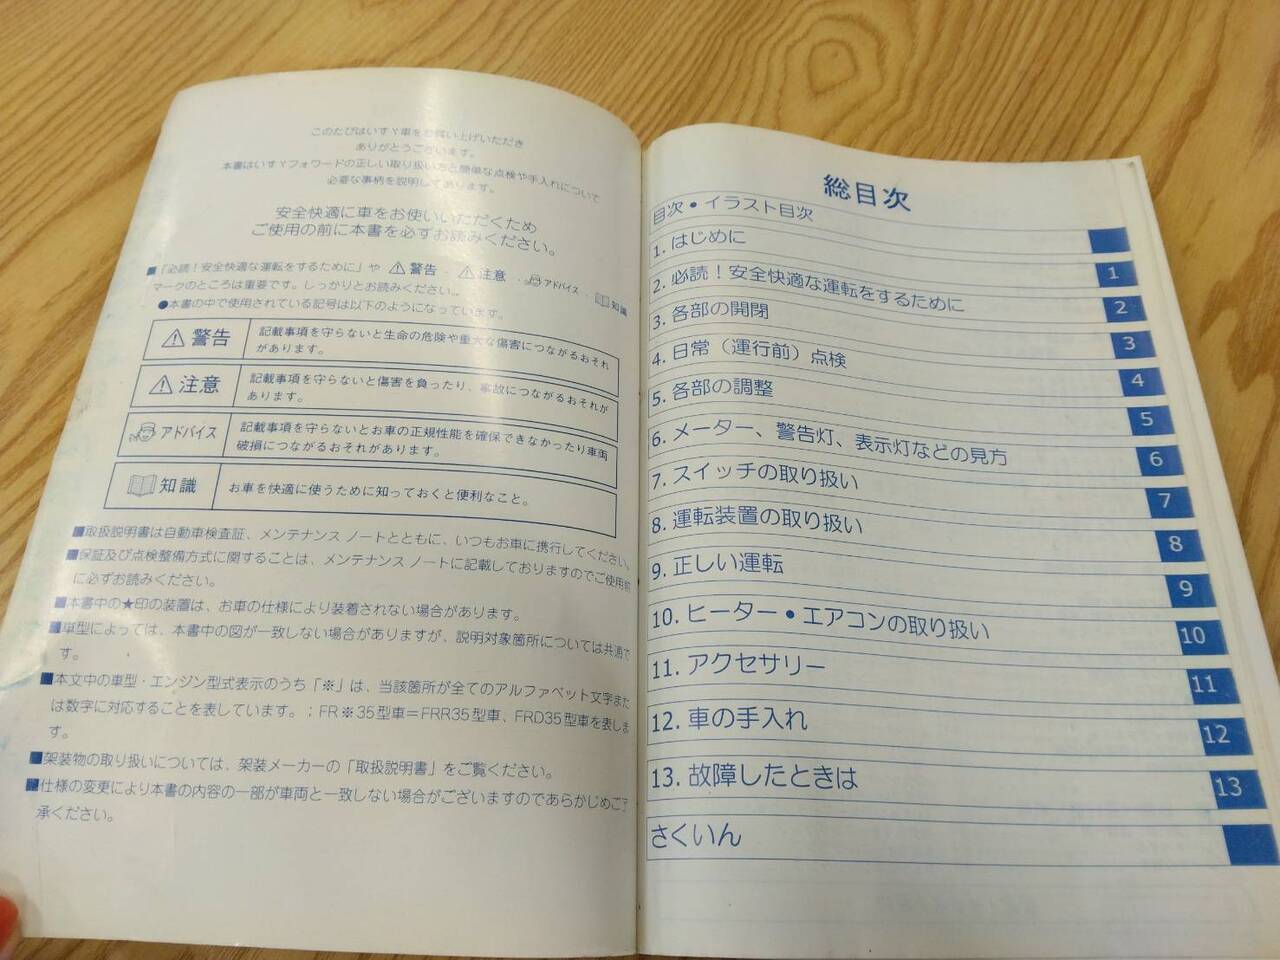 このたびはいすゞ車をお買い上げいただき
ありがとうございます。
本書はいすゞフォワードの正しい取り扱い方と簡単な点検や手入れについて
必要な事柄を説明してあります。
安全快適に車をお使いいただくため
ご使用の前に本書を必ずお読みください。
■「必読！安全快適な運転をするために」や ⚠警告 ・ ⚠注意 ・ アドバイス ・ 知識
マークのところは重要です。しっかりとお読みください。
●本書の中で使用されている記号は以下のようになっています。
⚠警告 記載事項を守らないと生命の危険や重大な傷害につながるおそれ
があります。
⚠注意 記載事項を守らないと傷害を負ったり、事故につながるおそれが
あります。
アドバイス 記載事項を守らないとお車の正規性能を確保できなかったり車両
破損につながるおそれがあります。
知識 お車を快適に使うために知っておくと便利なこと。
■取扱説明書は自動車検査証、メンテナンス ノートとともに、いつもお車に携行してください。
■保証及び点検整備方式に関することは、メンテナンス ノートに記載しておりますのでご使用前
に必ずお読みください。
■本書中の★印の装置は、お車の仕様により装着されない場合があります。
■車型によっては、本書中の図が一致しない場合がありますが、説明対象箇所については共通で
す。
■本文中の車型・エンジン型式表示のうち「※」は、当該箇所が全てのアルファベット文字また
は数字に対応することを表しています。；FR※35型車＝FRR35型車、FRD35型車を表しま
す。
■架装物の取り扱いについては、架装メーカーの「取扱説明書」をご覧ください。
■仕様の変更により本書の内容の一部が車両と一致しない場合がございますのであらかじめご了
承ください。
総目次
目次・イラスト目次
1. はじめに 1
2. 必読！安全快適な運転をするために 2
3. 各部の開閉 3
4. 日常（運行前）点検 4
5. 各部の調整 5
6. メーター、警告灯、表示灯などの見方 6
7. スイッチの取り扱い 7
8. 運転装置の取り扱い 8
9. 正しい運転 9
10. ヒーター・エアコンの取り扱い 10
11. アクセサリー 11
12. 車の手入れ 12
13. 故障したときは 13
さくいん